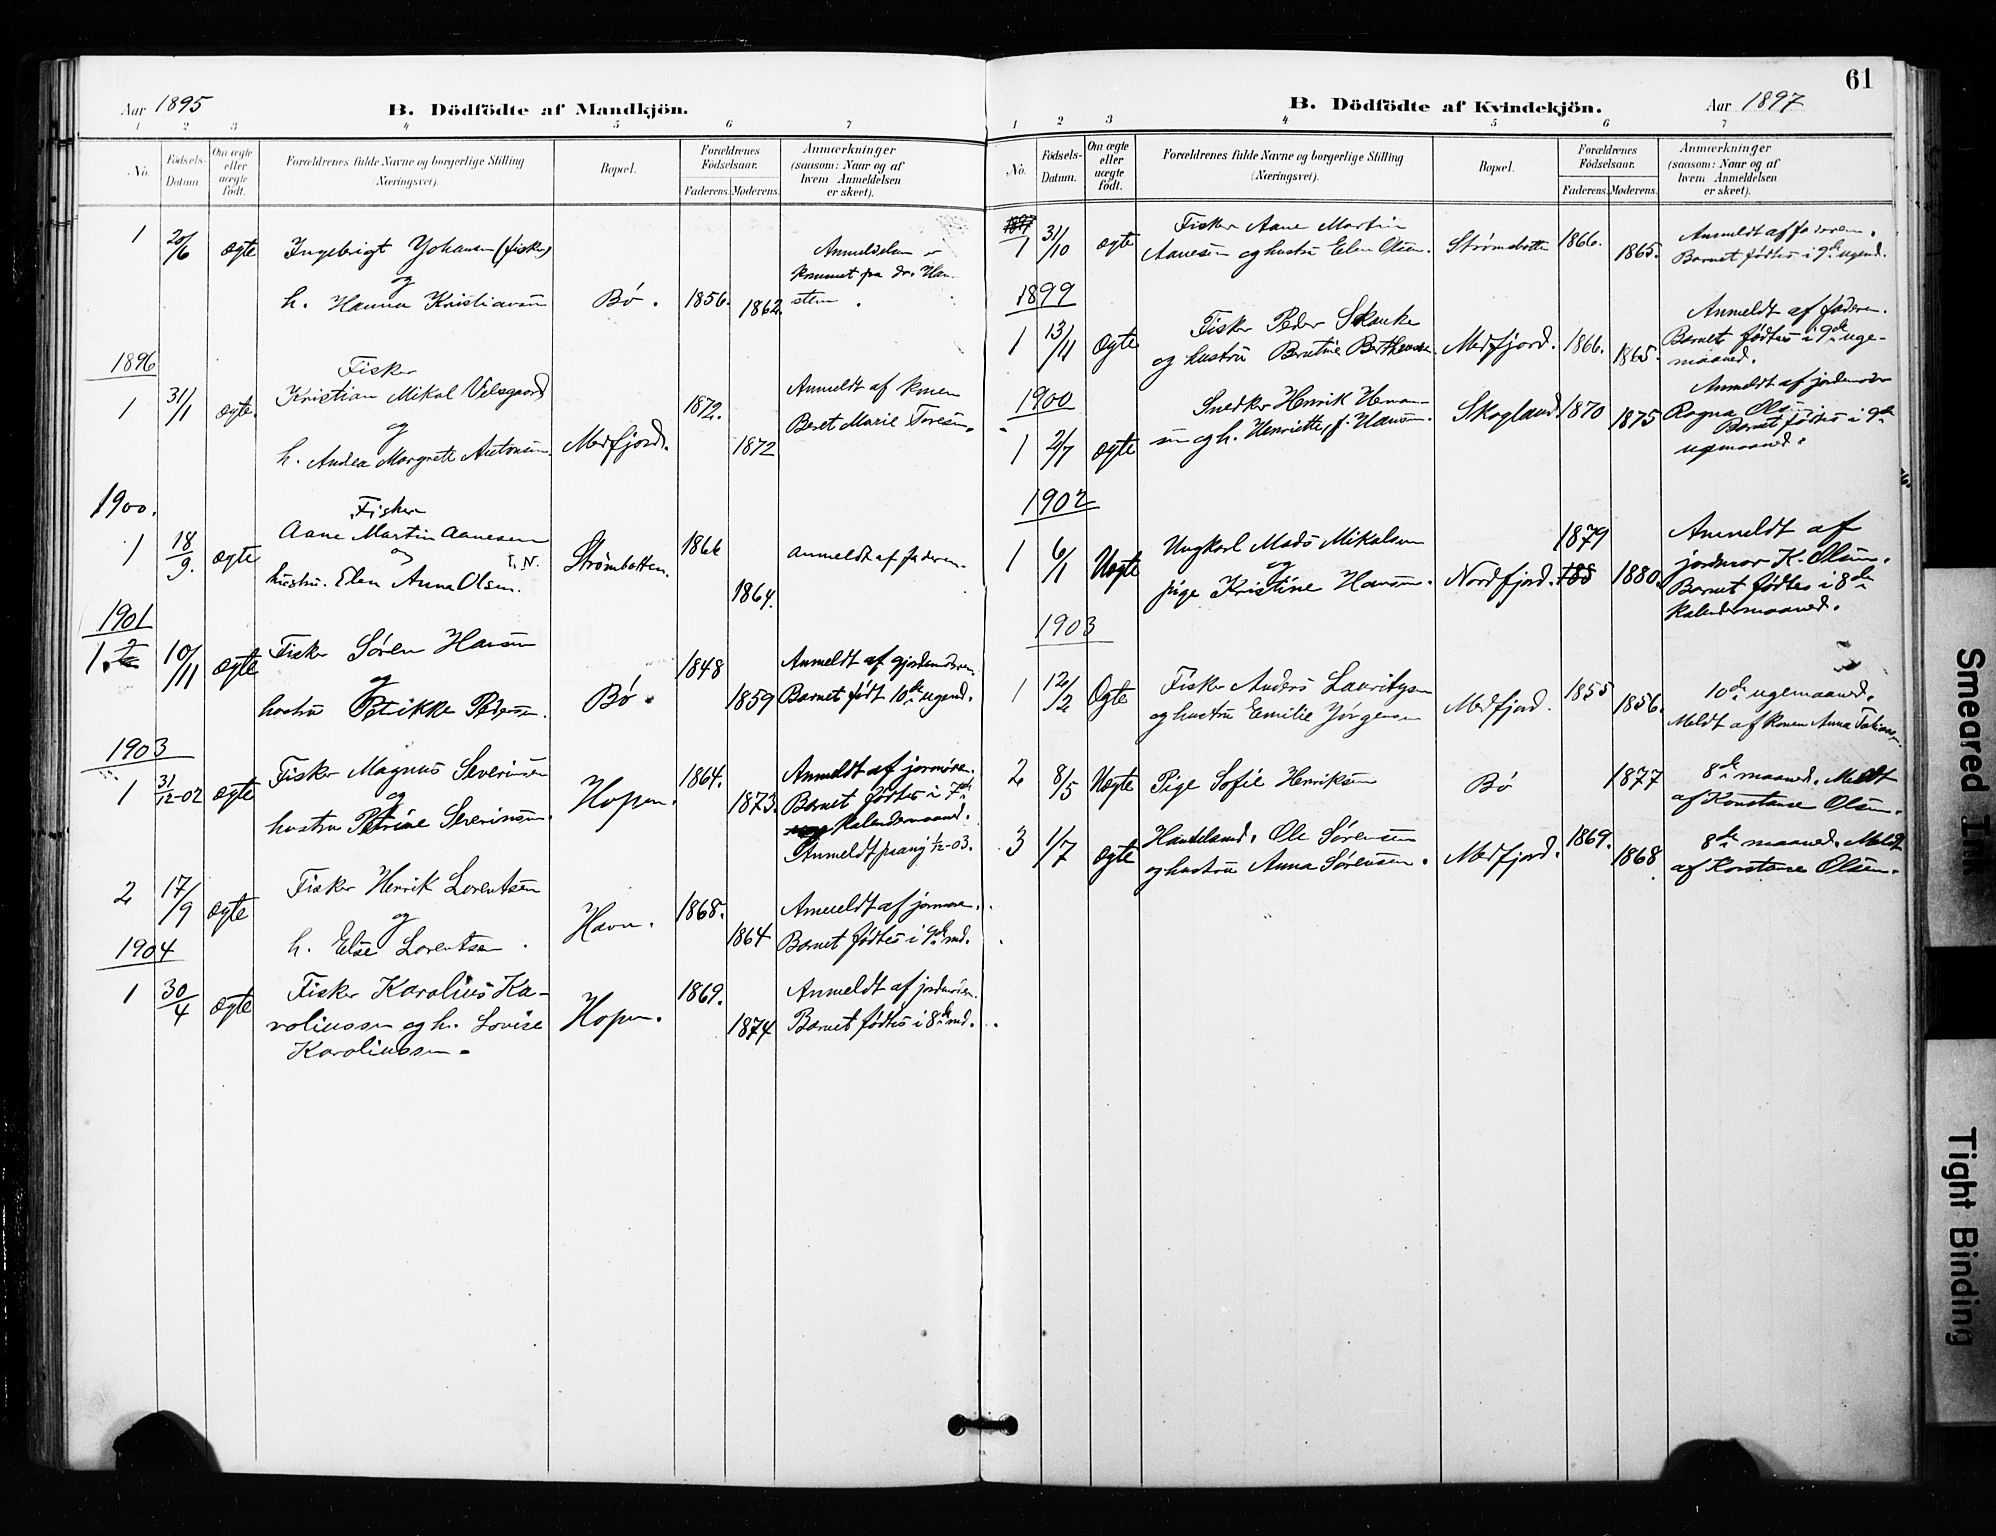 Aar 1895
B. Dödfödte af Mandkjön.
1 2 3 4 5 6 7
No.
Födsels-Datum.
Om ægte eller uægte födt.
Forældrenes fulde Navne og borgerlige Stilling (Næringsvei).
Bopæl.
Forældrenes Födselsaar.
Faderens. Moderens.
Anmærkninger (saasom: Naar og af hvem Anmeldelsen er skeet).
1 20/6 ægte Ingebrigt Johansen (fisker)
og
h. Hanna Kristiansen Bø. 1856. 1862.
Anmeldelsen
kommet fra dr. Han-
steen.
1896
Fisker
1 31/1 ægte. Kristian Mikal
og
h. Andea Margrete Antonsen Medfjord. 1872. 1872
Anmeldt af konen
Beret Marie Toresen.
1900.
Fisker
1 18/9. ægte Aane Martin Aanesen
og T. N.
hustru. Elen Anna Olsen. Strømbotten. 1866 1864.
Anmeldt af faderen.
1901
1. 10/11 Ægte Fisker Søren Hansen
og
hustru Petrikke Pedersen. Bø. 1848 1859
Anmeldt af gjordmoren.
Barnet født 10de ugend.
1903
1 31/12-02 Ægte Fisker Magnus Severinsen
og
hustru Petrine Severinsen. Hopen. 1864. 1873.
Anmeldt af jormoren.
Barnet fødtes i 7de
kalendermaaned.
Anmeldt paany 1/2-03.
2 17/9 Ægte Fisker Henrik Lorentsen
og
h. Else Lorentsen. Havn. 1868. 1864
Anmeldt af jormoren.
Barnet fødtes i 9de md.
1904
1 30/4 Ægte Fisker Karolius Ka-
roliussen og h. Lovise
Karoliussen. Hopen. 1869. 1874
Anmeldt af jordmoren.
Barnet fødtes i 8de md.
61
B. Dödfödte af Kvindekjön.
Aar 1897
1 2 3 4 5 6 7
No.
Födsels-Datum.
Om ægte eller uægte födt.
Forældrenes fulde Navne og borgerlige Stilling (Næringsvei).
Bopæl.
Forældrenes Födselsaar.
Faderens. Moderens.
Anmærkninger (saasom: Naar og af hvem Anmeldelsen er skeet).
1897
1 31/10 ægte Fisker Aane Martin
Aanesen og hustru Elen Olsen. Strømsbotten 1866. 1865.
Anmeldt af faderen.
Barnet fødtes i 9de ugend.
1899
1 13/11 Ægte Fisker Peder Skanke
og hustru Berntine Berthensen. Medfjord. 1866. 1865.
Anmeldt af faderen.
Barnet fødtes i 9de uge-
maaned.
1900
1 2/7 Ægte Snedker Henrik Hen
sen og h. Henriette, f. Hansen. Skogland. 1870 1875
Anmeldt af jordmoren
Ragna Olsen.
Barnet fødtes i 9de
ugemaaned.
1902
1 6/1 Uægte Ungkarl Mads Mikalsen
og
pige Kristine Hansen. Nordfjord. 1879 188 1880
Anmeldt af
jordmor K. Olsen.
Barnet fødtes i 8de
kalendermaaned.
1903
1 12/2 Ægte Fisker Anders Lauritysen
og hustru Emilie Jørgensen Medfjord. 1855 1856.
10de ugemaaned.
Meldt af konen Anna
2 8/5 Uægte Pige Sofie Henriksen Bø 1877
8de maaned. Meldt
af Konstanse Olsen.
3 1/7 Ægte Handelsmd. Ole Sørensen
og hustru Anna Sørensen. Medfjord. 1869. 1868
8de maaned. Meldt
af Konstanse Olsen.
Smeared Ink
Tight Binding